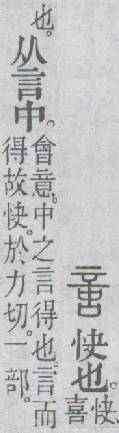 𠶷 快也。快
喜
也。
从言中。
會意。中之言得也。言而
得故快。於力切。一部。